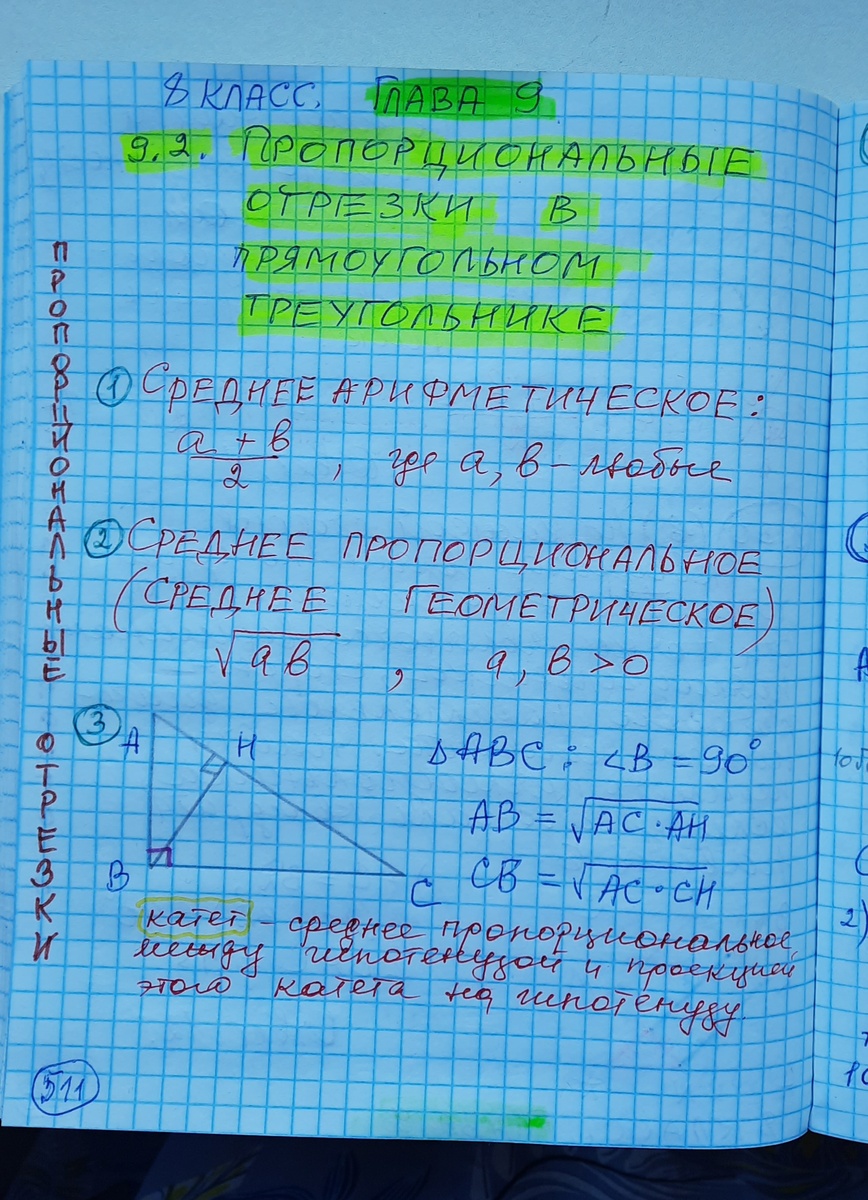 8 КЛАСС. ГЛАВА 9
9.2. ПРОПОРЦИОНАЛЬНЫЕ
ОТРЕЗКИ В
ПРЯМОУГОЛЬНОМ
ТРЕУГОЛЬНИКЕ
ПРОПОРЦИОНАЛЬНЫЕ ОТРЕЗКИ
1 СРЕДНЕЕ АРИФМЕТИЧЕСКОЕ:
a + b / 2 , где a, b - любые
2 СРЕДНЕЕ ПРОПОРЦИОНАЛЬНОЕ
(СРЕДНЕЕ ГЕОМЕТРИЧЕСКОЕ)
√ab , a, b > 0
3
A H
B C
ΔABC : ∠B = 90°
AB = √AC·AH
CB = √AC·CH
катет - среднее пропорциональное
между гипотенузой и проекцией
этого катета на гипотенузу.
511
2)